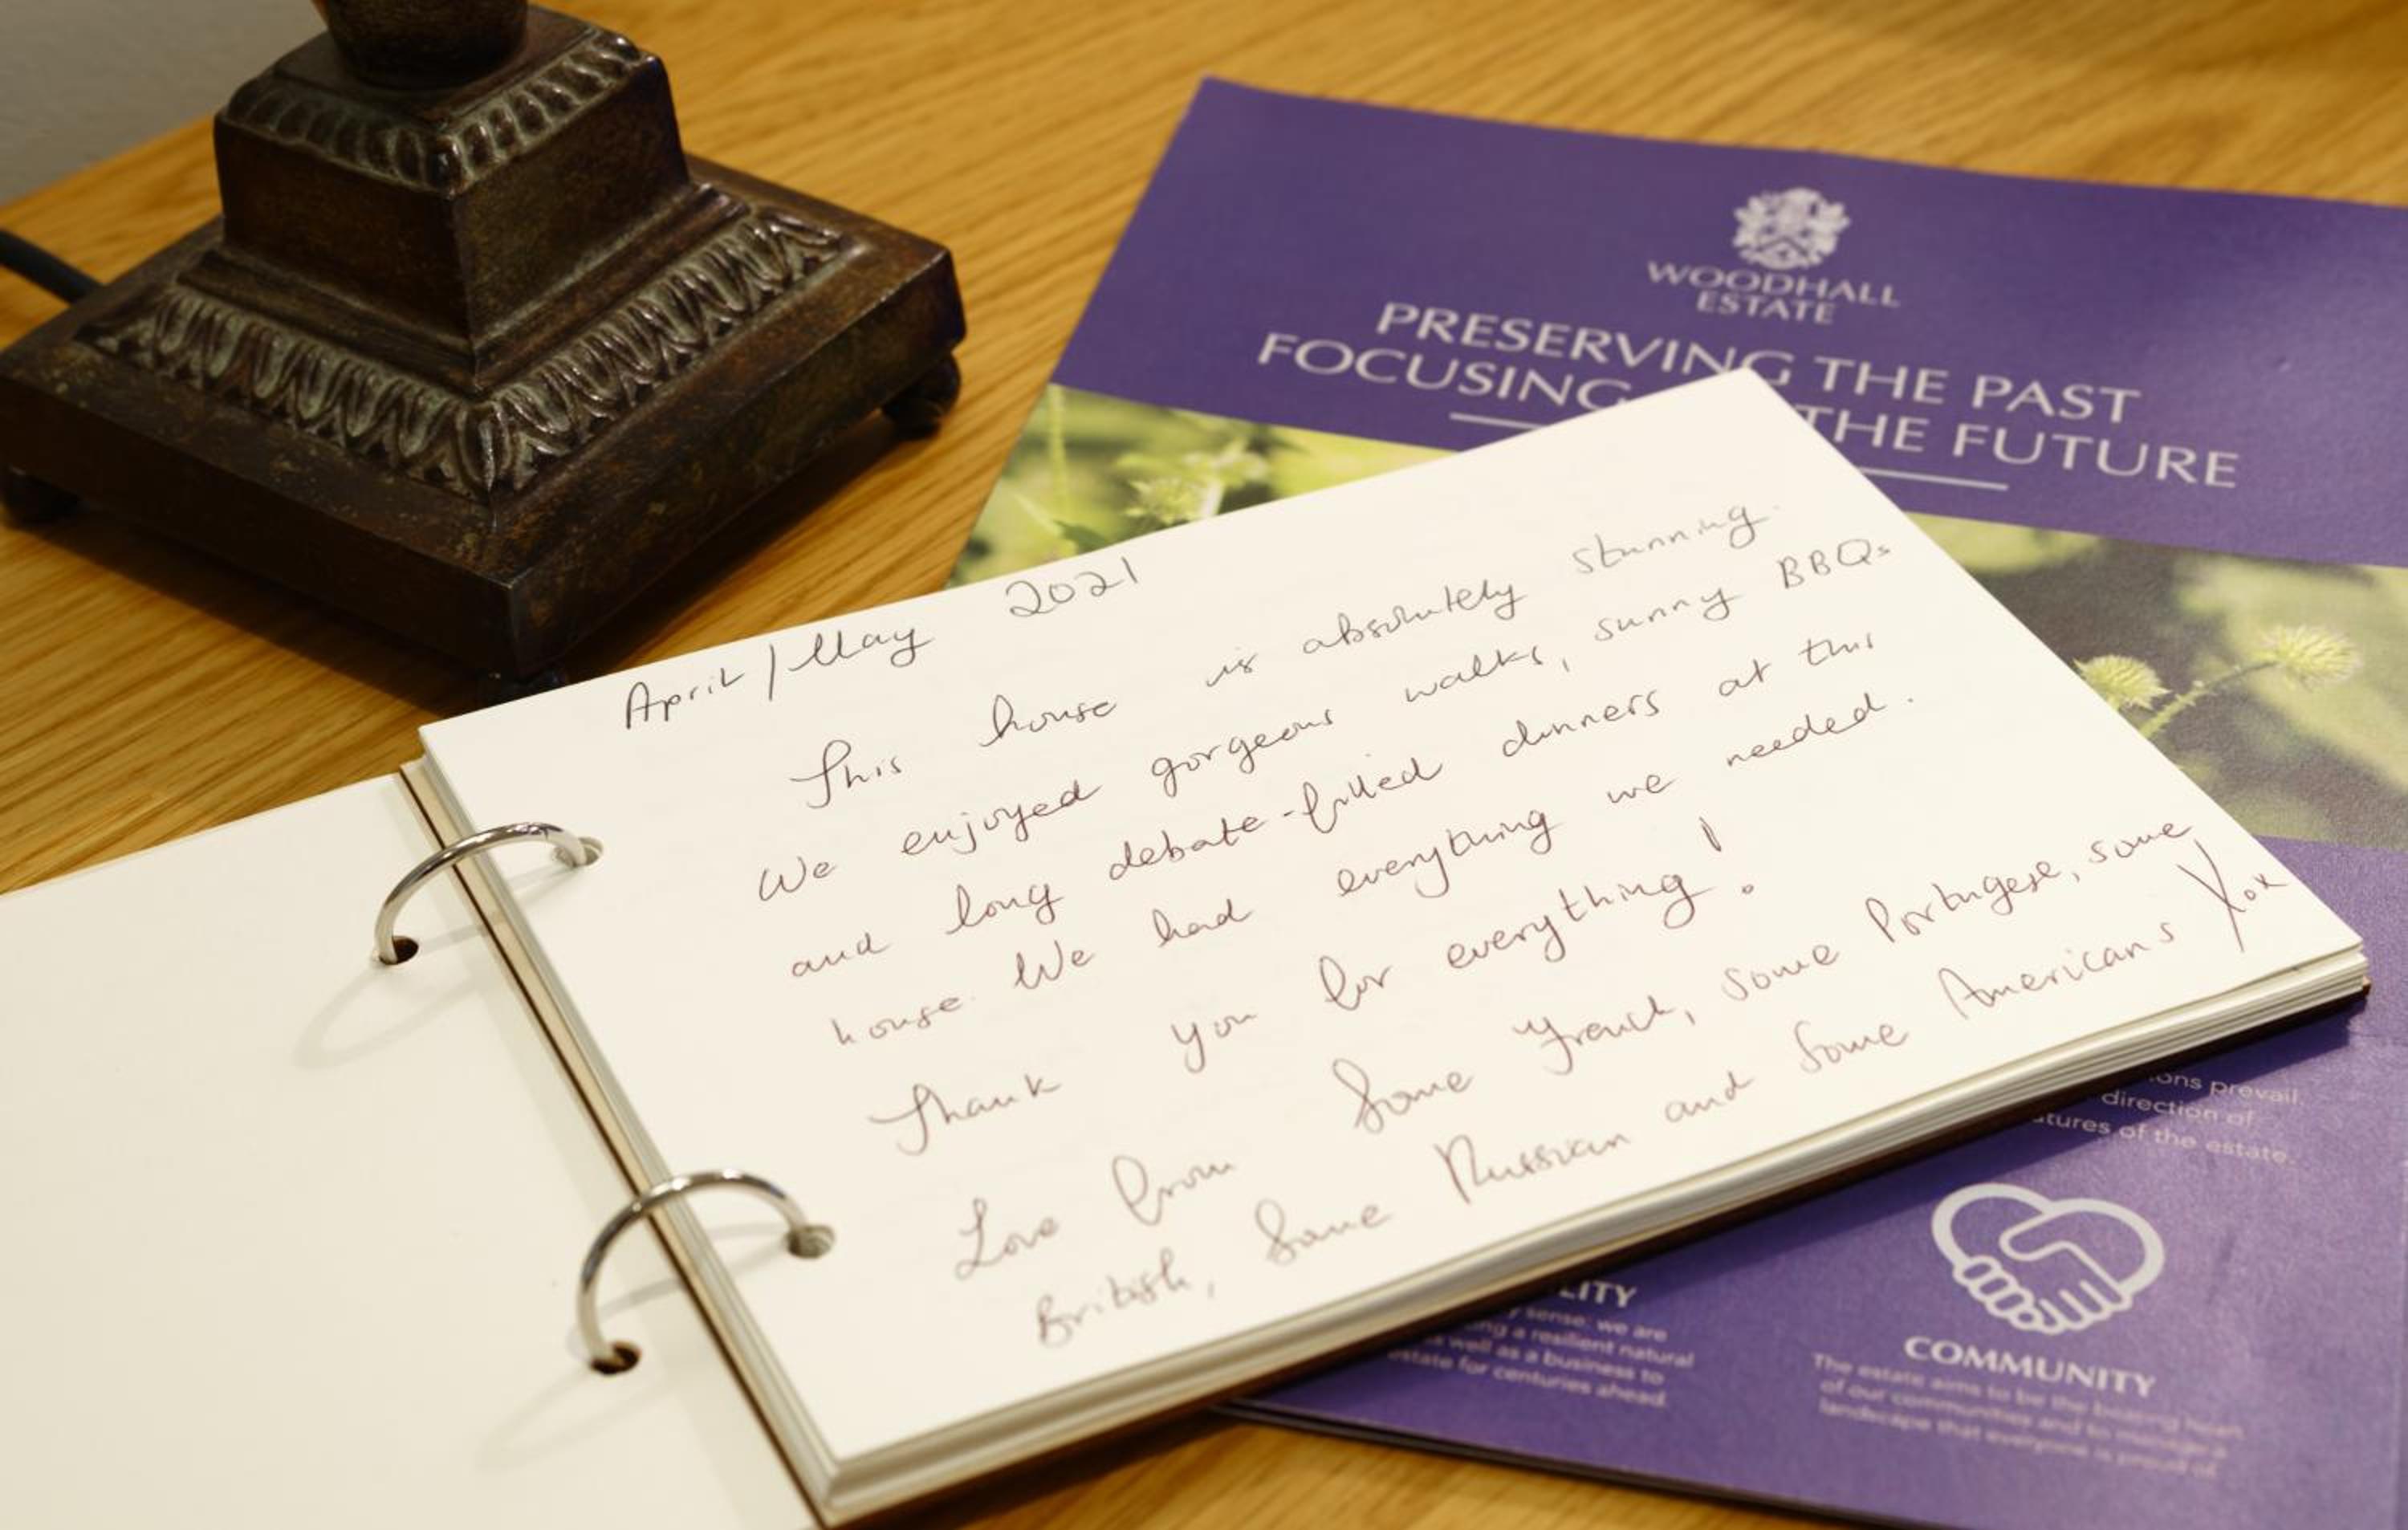 WOODHALL
ESTATE
PRESERVING THE PAST
FOCUSING THE FUTURE
April / May 2021
This house is absolutely stunning.
We enjoyed gorgeous walks, sunny BBQs
and long debate-filled dinners at this
house. We had everything we needed.
Thank you for everything!
Love from Some French, some Portugese, some
British, Some Russian and Some Americans Xox
prevail.
direction of
of the estate.
sense: we are
a resilient natural
well as a business to
estate for centuries ahead.
COMMUNITY
The estate aims to be the beating heart
of our communities and to manage a
landscape that everyone is proud of.